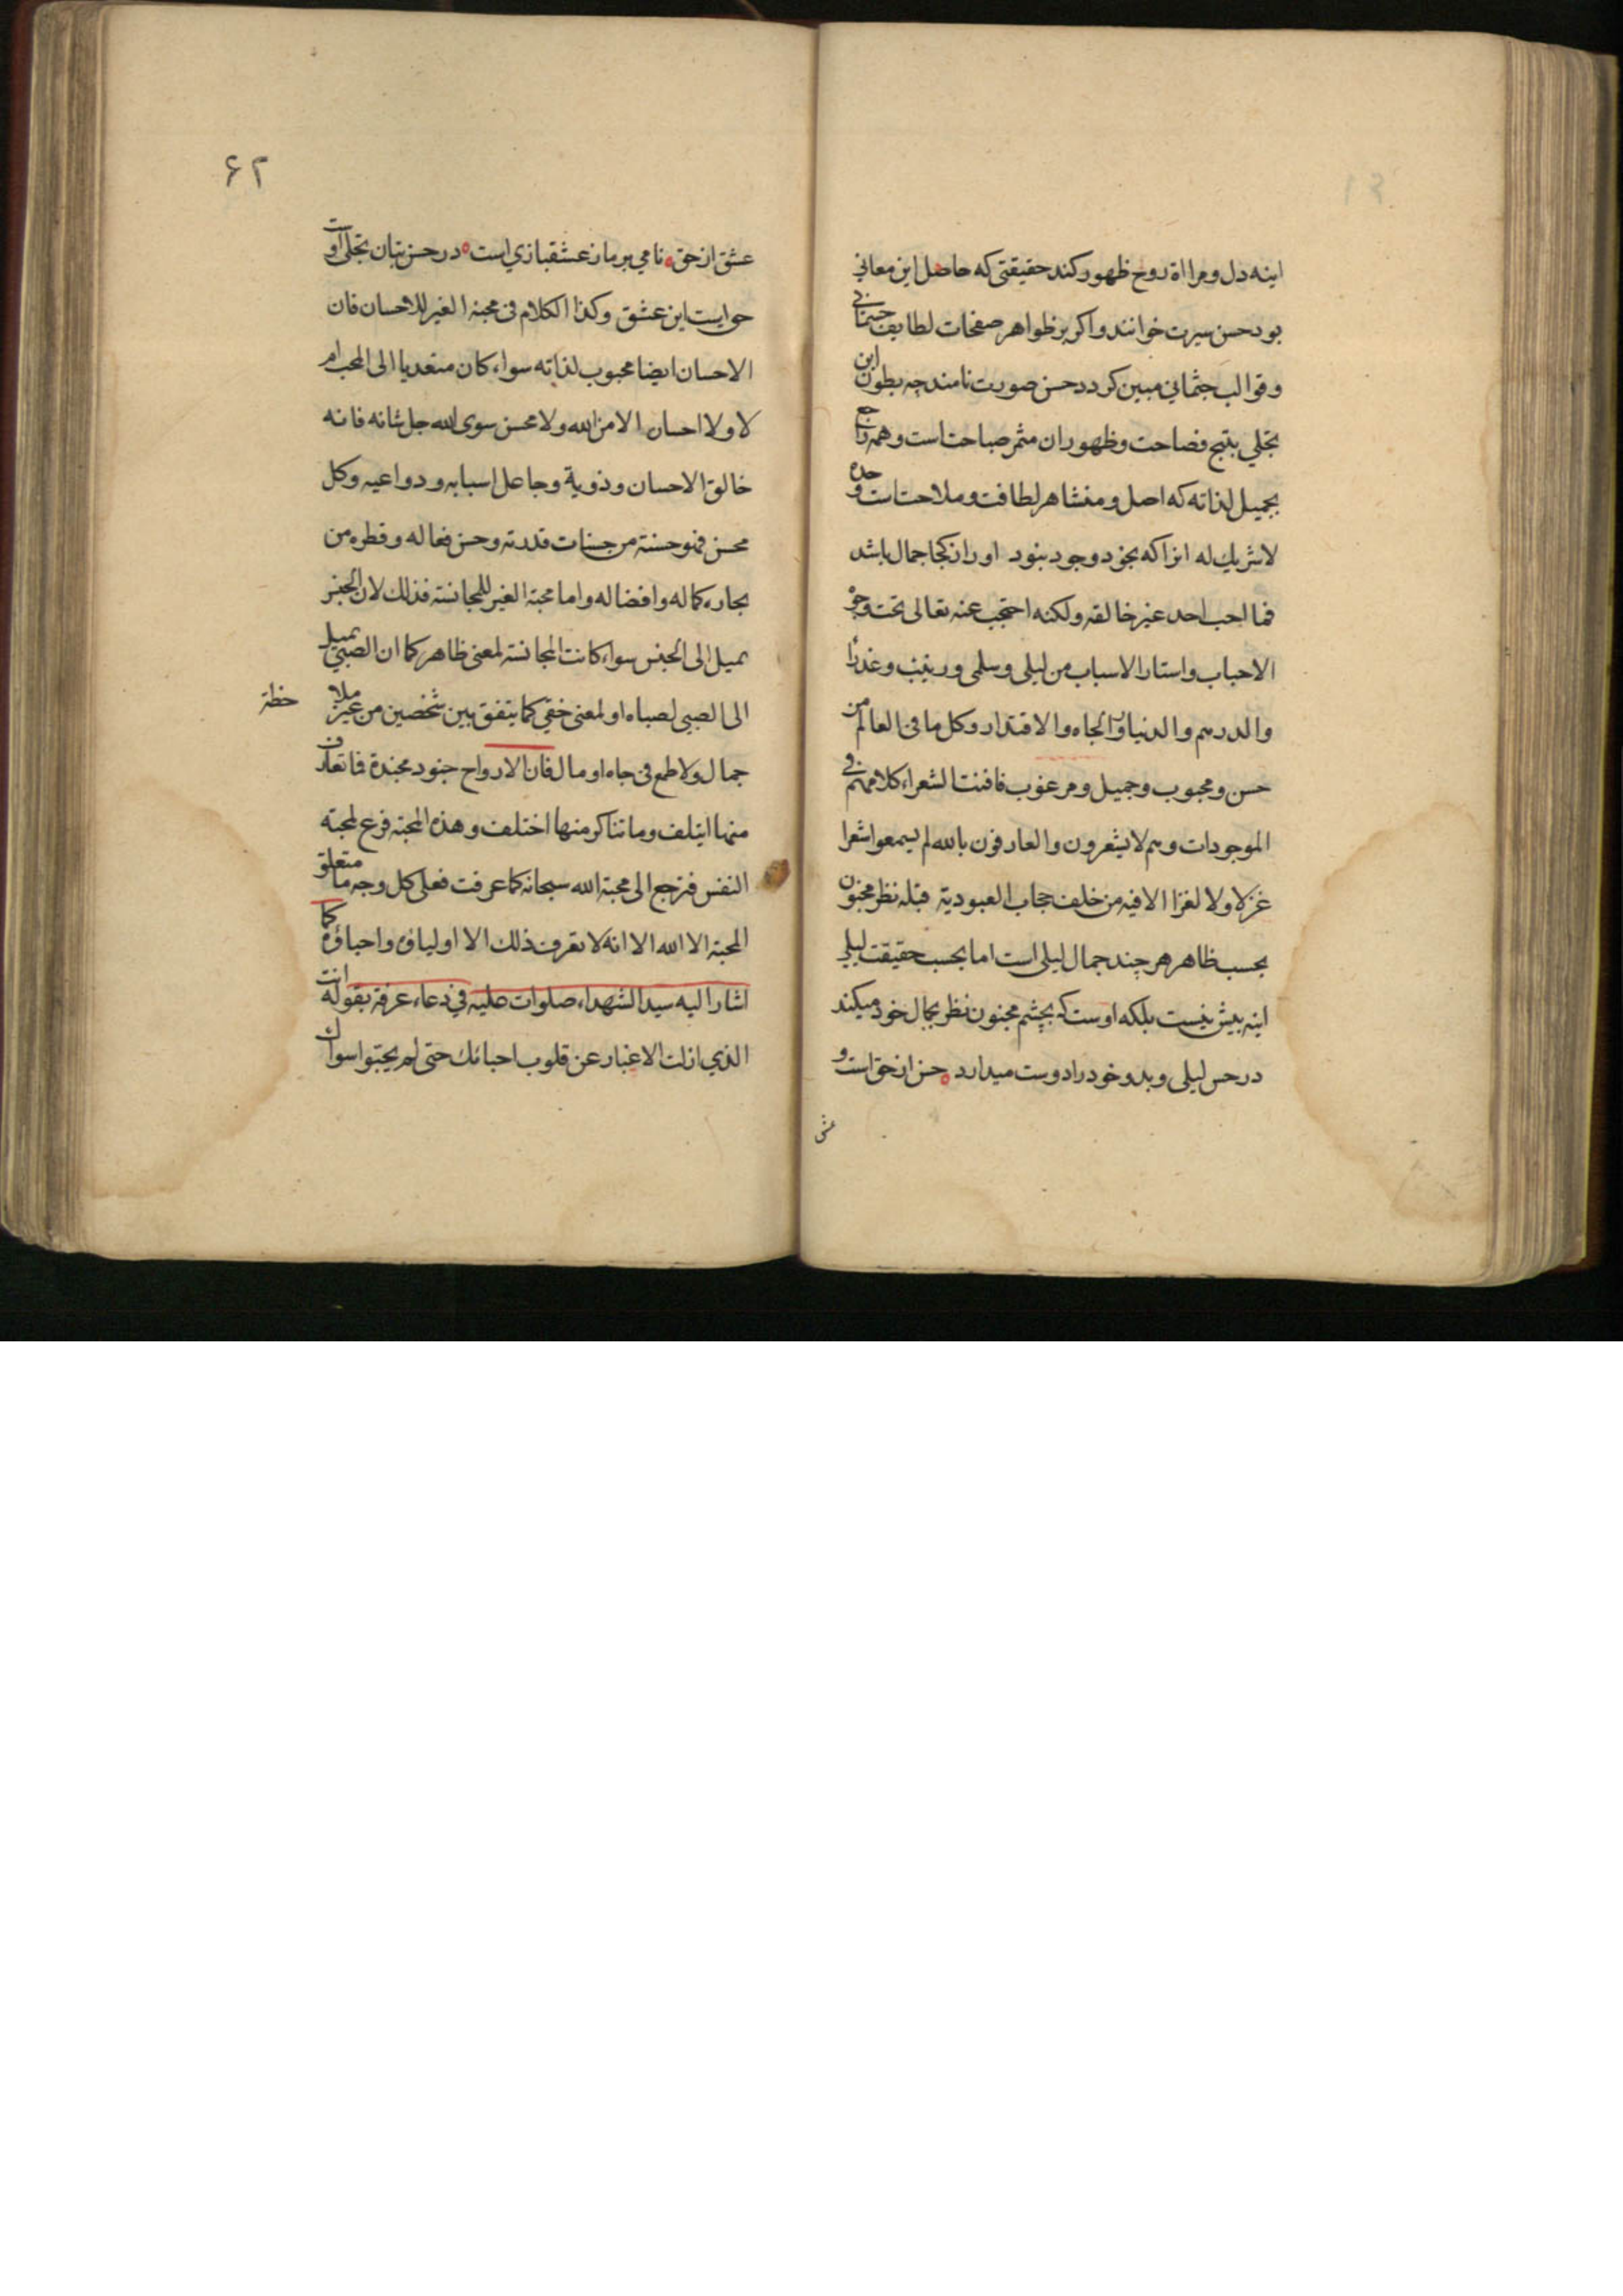 اینه دل و مرااة روح ظهور کند حقیقتی که حاصل این معانی
بود حسن سیرت خوانند و اکر بر ظواهر صفحات لطایف جسمانی
و قوالب جثمانی مبین کردد حسن صورت نامند چه بطون این
تجلی منتج فصاحت و ظهور ان مثمر صباحت است و همه راجع
بجمیل لذاته که اصل و منشا هر لطافت و ملاحت است وحده
لاشریك له انرا که بخود وجود نبود اوران کجا جمال باشد
فما احب احد غیر خالقه ولکنه احتجب عنه تعالی تحت وجوه
الاحباب واستار الاسباب من لیلی وسلمی وزینب وعذرا
والدرهم والدنیا والجاه والاقتدار وکل ما فی العالم من
حسن ومحبوب وجمیل ومرغوب فافنت الشعراء کلامهم فی
الموجودات وهم لایشعرون والعارفون بالله لم یسمعوا شعرا
غزلا ولا لغزا الا فیه من خلف حجاب العبودیة قبله نظر مجنون
بحسب ظاهر هر چند جمال لیلی است اما بحسب حقیقت لیلی
اینه بیش نیست بلکه اوست که بچشم مجنون نظر بجمال خود میکند
در حسن لیلی و بدو خود را دوست میدارد حسن از حق است و
عش
۶۲
عشق از حق نامی بر ما ز عشقبازی است در حسن بتان تجلی اوست
حو ایست این عشق وکذا الکلام فی محبة الغیر للاحسان فان
الاحسان ایضا محبوب لذاته سواء کان متعدیا الی المحب ام
لا ولا احسان الا من الله ولا محسن سوی الله جل شانه فانه
خالق الاحسان وذویة وجاعل اسبابه ودواعیه وکل
محسن فهو حسنة من حسنات قدرته وحسن فعاله وقطره من
بحار کماله وافضاله واما محبة الغیر للمجانسة فذلك لان الجنس
یمیل الی الجنس سواء کانت المجانسة لمعنی ظاهر کما ان الصبی یمیل
الی الصبی لصباه او لمعنی خفی کما یتفق بین شخصین من غیر ملا
حظة
جمال ولا طمع فی جاه او مال فان الارواح جنود مجندة فما تعارف
منها ایتلف وما تناکر منها اختلف وهذه المحبة فرع لمحبة
النفس فترجع الی محبة الله سبحانه کما عرفت فعلی کل وجه ما متعلق
المحبة الا الله الا انه لا یعرف ذلك الا اولیاؤه واحباؤه کما
اشار الیه سید الشهداء صلوات علیه فی دعاء عرفة بقوله انت
الذی ازلت الاغیار عن قلوب احبائك حتی لم یحبوا سواك